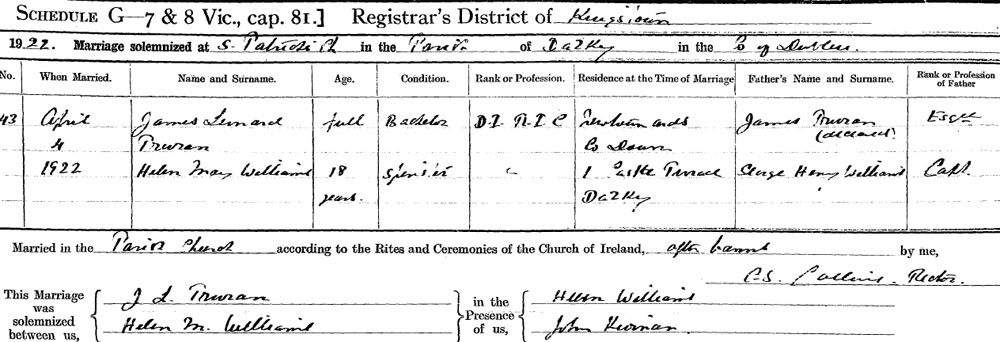 SCHEDULE G—7 & 8 Vic., cap. 81.] Registrar's District of Kingstown
1922. Marriage solemnized at S. Patrick's Ch in the Parish of Dalkey in the Co of Dublin.
No. When Married. Name and Surname. Age. Condition. Rank or Profession. Residence at the Time of Marriage Father's Name and Surname. Rank or Profession of Father
43 April James Leonard full Bachelor D.I. R.I.C Newtownards James Truran Esqre
(deceased)
4 Truran Co Down
1922 Helen May Williams 18 Spinster 1 Castle Terrace George Henry Williams Capt.
years. Dalkey
Married in the Parish Church according to the Rites and Ceremonies of the Church of Ireland, after banns by me,
C.S. Collins. Rector.
This Marriage was solemnized between us, J L. Truran in the Presence of us, Helen Williams
Helen M. Williams John Kiernan.